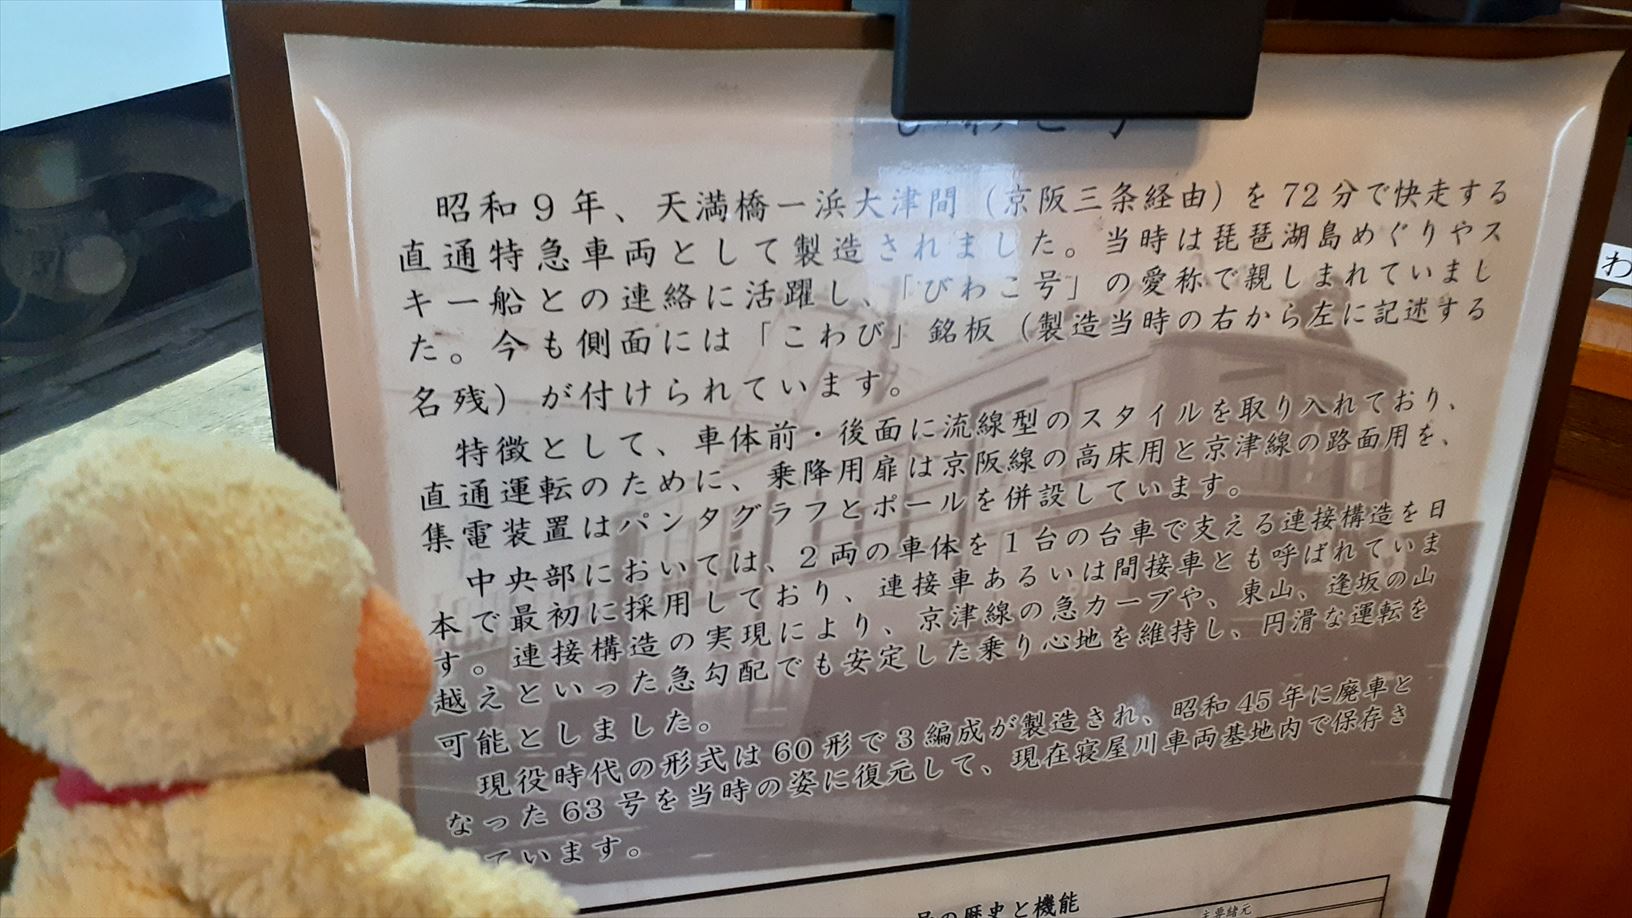 びわこ号
昭和9年、天満橋ー浜大津間（京阪三条経由）を72分で快走する
直通特急車両として製造されました。当時は琵琶湖島めぐりやス
キー船との連絡に活躍し、「びわこ号」の愛称で親しまれていまし
た。今も側面には「こわび」銘板（製造当時の右から左に記述する
名残）が付けられています。
特徴として、車体前・後面に流線型のスタイルを取り入れており、
直通運転のために、乗降用扉は京阪線の高床用と京津線の路面用を、
集電装置はパンタグラフとポールを併設しています。
中央部においては、2両の車体を1台の台車で支える連接構造を日
本で最初に採用しており、連接車あるいは間接車とも呼ばれていま
す。連接構造の実現により、京津線の急カーブや、東山、逢坂の山
越えといった急勾配でも安定した乗り心地を維持し、円滑な運転を
可能としました。
現役時代の形式は60形で3編成が製造され、昭和45年に廃車と
なった63号を当時の姿に復元して、現在寝屋川車両基地内で保存さ
ています。
号の歴史と機能
主要緒元
わ